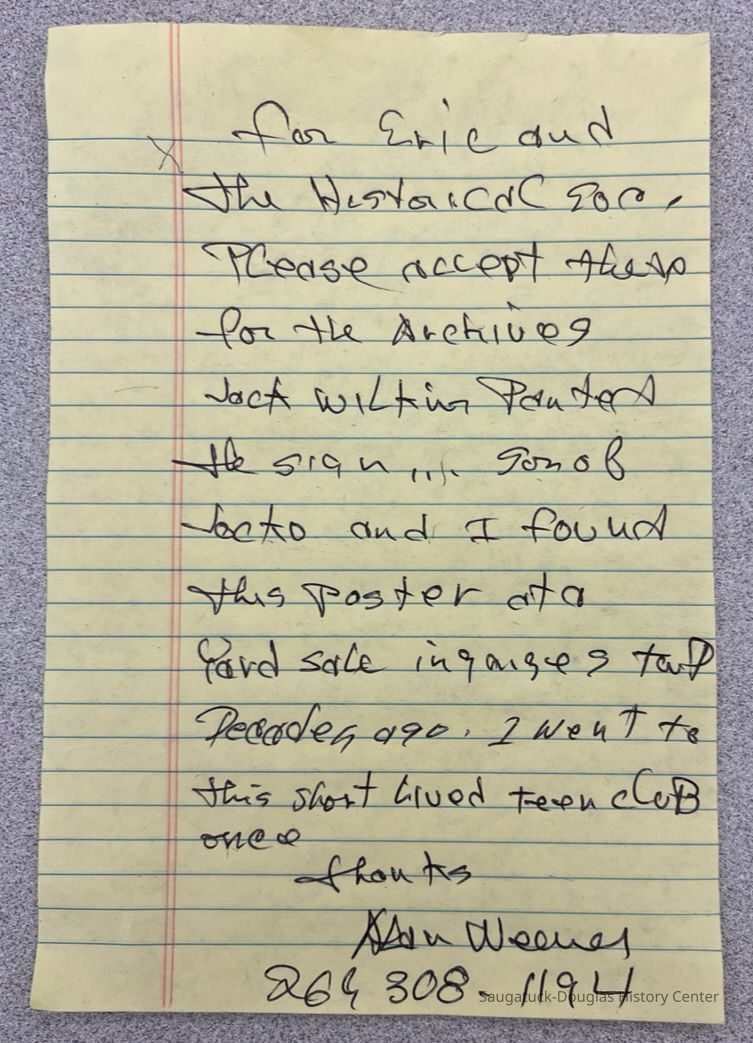 for Eric and
the Historical Soc.
Please accept these
for the Archives
Jack Wilkin Painted
the sign ... Son of
Jocko and I found
this Poster at a
Yard sale in ganges twp
Decades ago. I went to
this short lived teen cluB
once
thanks
269 308-1194
Saugatuck-Douglas History Center